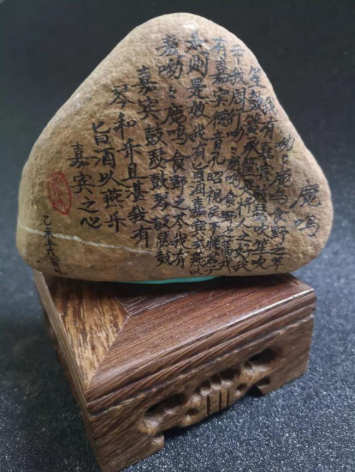 鹿鸣
呦呦鹿鸣食野之苹
我有嘉宾鼓瑟吹笙吹
笙鼓簧承筐是将人之好我
示我周行呦呦鹿鸣食野之蒿我
有嘉宾德音孔昭视民不恌君子
是则是效我有旨酒嘉宾式燕以
敖呦呦鹿鸣食野之芩我有
嘉宾鼓瑟鼓琴鼓瑟鼓
琴和乐且甚我有
旨酒以燕乐
嘉宾之心